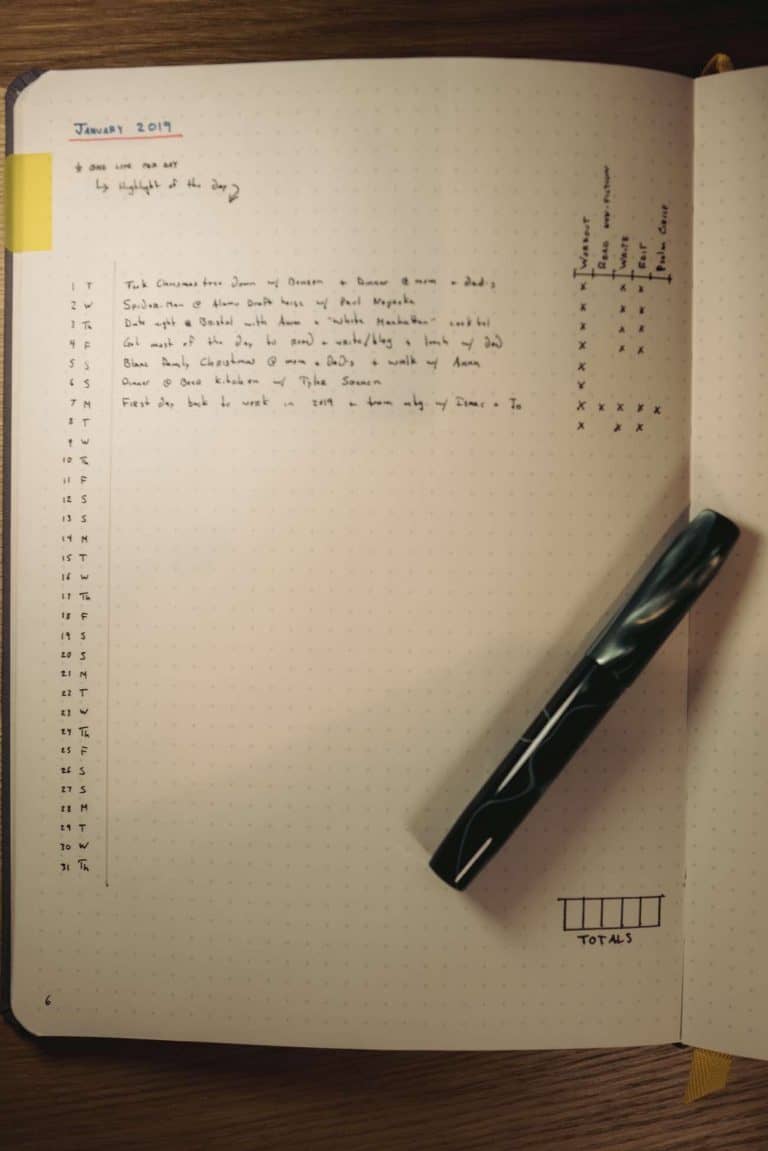 JANUARY 2019
* ONE LINE PER DAY
↳ Highlight of the day
WORKOUT
READ NON-FICTION
WRITE
EDIT
Psalm
1 T Took Christmas tree down w/ Benson + Dinner @ mom + dad's
2 W Spider-Man @ Alamo Draft house w/ Paul
3 Th Date night @ Bristol with Anna + "White Manhattan" cocktail
4 F Got most of the day to read + write/blog + lunch w/ dad
5 S Blanc Family Christmas @ mom + Dad's + walk w/ Anna
6 S Dinner @ kitchen w/ Tyler
7 M First day back to work in 2019 + team mtg. w/ Isaac + Jo
8 T
9 W
10 Th
11 F
12 S
13 S
14 M
15 T
16 W
17 Th
18 F
19 S
20 S
21 M
22 T
23 W
24 Th
25 F
26 S
27 S
28 M
29 T
30 W
31 Th
TOTALS
6